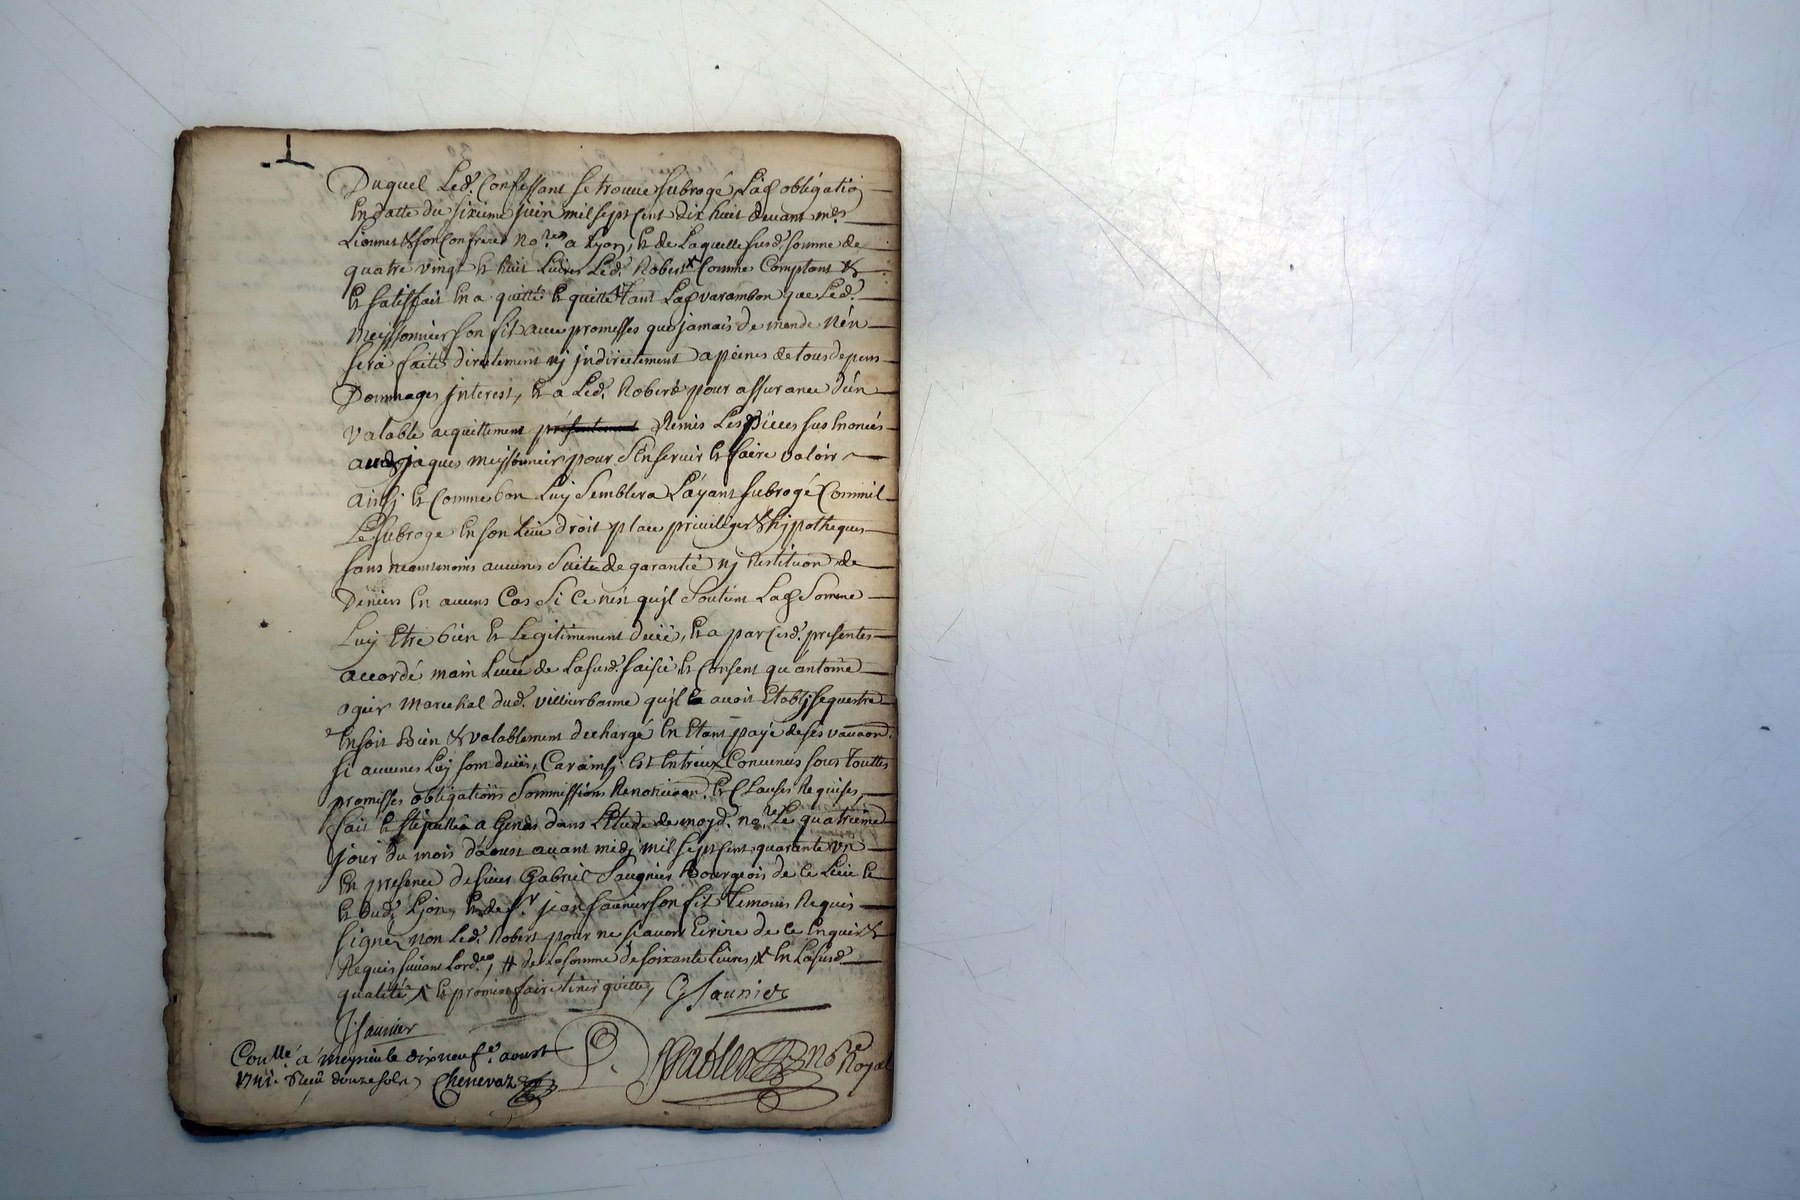 Duquel Led. Confessant se trouve subrogé Lad obligatio
En datte du sixieme juin mil sept cent dix huit devant mes
& son Confrere no.res a Lyon, Et de Laquelle susd. somme de
quatre vingt Et huit Livres Led. Robert Comme Comptant &
Et satisfait En a quitté Et quitte tant Lad varambon que Led.
Meissonnier son fit avec promesses que jamais demande n'en
sera faite directement nj jndirectement a peines de tous depens
Dommages jnterest, Et a Led. Robert pour assurance d'un
valable acquittement Remis Les Pieces sus Enoncés
aud jaques meissonnier pour s'En servir Et faire valoir
ainsj Et Comme bon Luj Semblera L'ayant subrogé Comm'il
Le subroge En son Lieu droit place privileges & hjpotheques
sans neantmoins aucunes Suitte de garantie nj Restituon de
Deniers En aucuns Cas Si Ce n'est qu'jl Soutient Lad Somme
Luj Etre bien Et Legitimement deüe, Et a par Cesd. presentes
accordé main Levée de La susd. saisie Et Consent qu'antoine
ogier Marechal dud. villieurbanne qu'jl avoit Etablj sequestre
En soit Bien & valablement dechargé En Etant payé de ses vacaon.
si aucunes Luj sont deües, Car ainsj Est Entr'eux Convenus sous Touttes
promesses obligations Sommissions Renonciaon. Et Clauses Requises,
fait Et stipullé a Genas dans L'Etude de moyd. no.re Le quatrieme
jour du mois d'aoust avant midj mil sept cent quarante un
En presence de sieur Gabriel Saugnier Bourgeois de Ce Lieu Et
Et dud. Lyon, Et de sr. jean saunier son fit Temoins Requis
signez non Led. Robert pour ne sçavoir Ecrire de Ce Enquis &
Requis suivant Lord.ce, # de La somme de soixante Livres, X En La susd.
qualité ^ Et promet faire tenir quitte, G Saunier
J Saunier
Conllé a meyzieu le dix neuf.e aoust P. no.re Royal
1741. Reçu douze sols Chenevaz